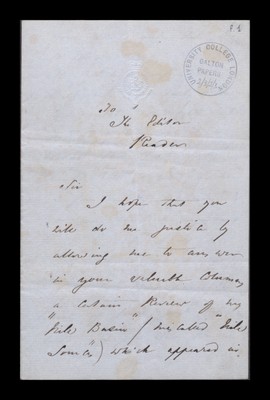 UNIVERSITY COLLEGE LONDON
GALTON
PAPERS
To
The Editor
Reader
Sir
I hope that you
will do me justice by
allowing me to answer
in your valuable Columns
a certain Review of my
"Nile Basin" (miscalled "Nile
Sources") which appeared in